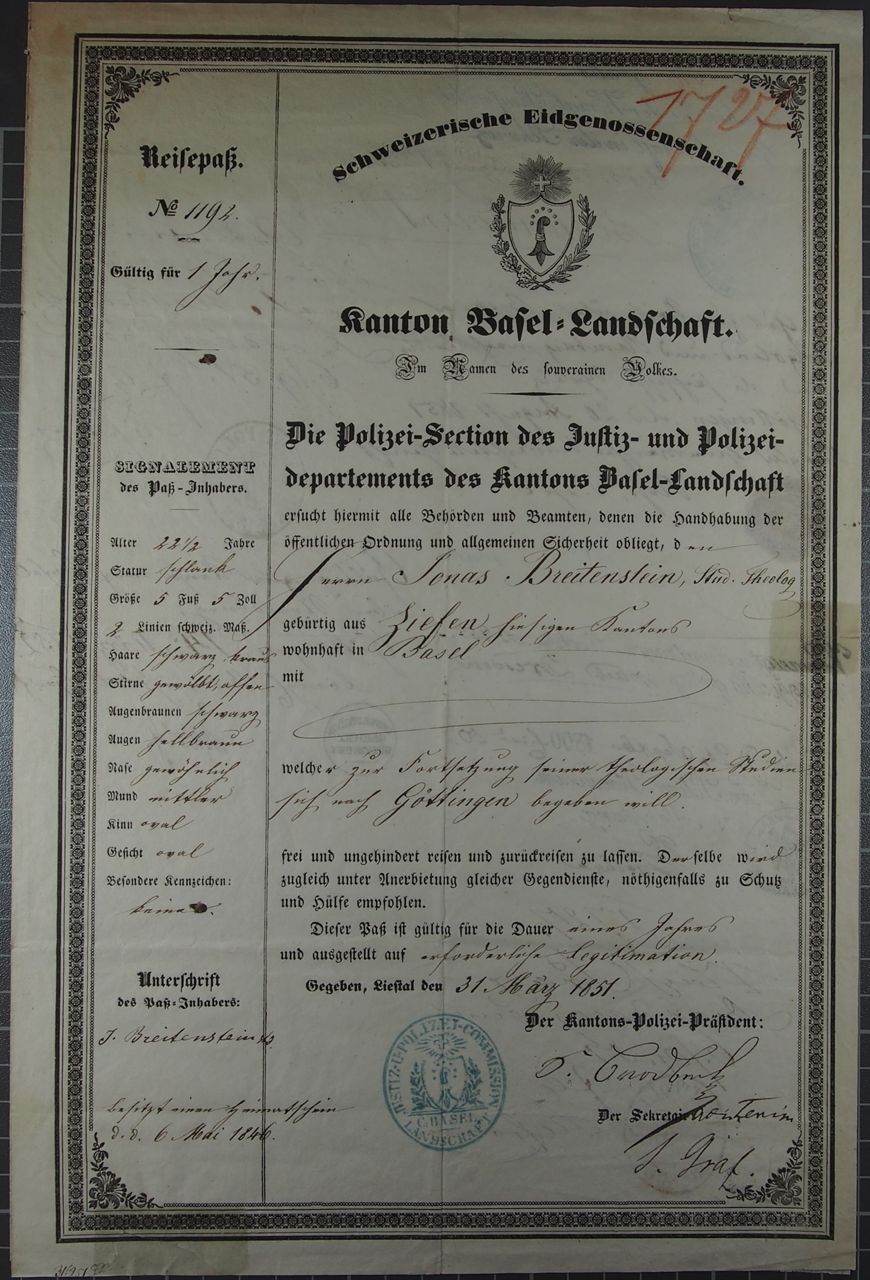 1727
Reisepaß.
No 1192.
Gültig für 1 Jahr.
SIGNALEMENT
des Paß-Inhabers.
Alter 22 1/2 Jahre
Statur schlank
Größe 5 Fuß 5 Zoll
2 Linien schweiz. Maß.
Haare schwarz kraus
Stirne gewölbt, offen
Augenbraunen schwarz
Augen hellbraun
Nase gewöhnlich
Mund mittler
Kinn oval
Gesicht oval
Besondere Kennzeichen:
keine.
Unterschrift
des Paß-Inhabers:
J. Breitenstein
besitzt einen Heimatschein
d. d. 6 Mai 1846.
Schweizerische Eidgenossenschaft.
Kanton Basel-Landschaft.
Im Namen des souverainen Volkes.
Die Polizei-Section des Justiz- und Polizei-
departements des Kantons Basel-Landschaft
ersucht hiermit alle Behörden und Beamten, denen die Handhabung der
öffentlichen Ordnung und allgemeinen Sicherheit obliegt, den
Herrn Jonas Breitenstein, Stud. Theolog
gebürtig aus Ziefen hiesigen Kantons
wohnhaft in Basel
mit
welcher zur Fortsetzung seiner theologischen Studien
sich nach Göttingen begeben will.
frei und ungehindert reisen und zurückreisen zu lassen. Derselbe wird
zugleich unter Anerbietung gleicher Gegendienste, nöthigenfalls zu Schutz
und Hülfe empfohlen.
Dieser Paß ist gültig für die Dauer eines Jahres
und ausgestellt auf erforderliche Legitimation.
Gegeben, Liestal den 31 März 1851.
Der Kantons-Polizei-Präsident:
JUSTIZ- U. POLIZEI-COMMISSION
C. BASEL
LANDSCHAFT
Der Sekretair
J. Graf.